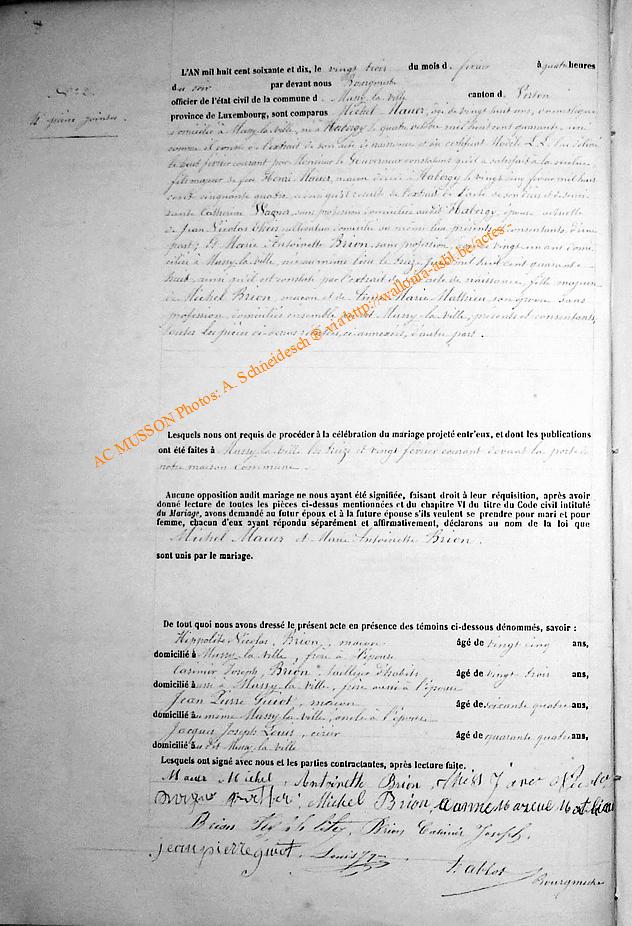 N° 2
4 pièces jointes.
L'AN mil huit cent soixante et dix, le vingt trois du mois d. février à quatre heures
du soir par devant nous Bourgmestre
officier de l'état civil de la commune d Mussy-la-ville canton d Virton
province de Luxembourg, sont comparus Michel Mauer, âgé de vingt huit ans, domestique,
domicilié à Mussy-la-ville, né à Habergy le quatre octobre mil huit cent quarante un
comme il conste de l'extrait de son acte de naissance et du certificat Modèle L.L. lui délivré
le huit février courant par Monsieur le Gouverneur constatant qu'il a satisfait à la milice
fils majeur de feu Henri Mauer, maçon décédé à Habergy le vingt février mil huit
cent cinquante quatre, ainsi qu'il résulte de l'extrait de l'acte de son décès et de
Catherine Wagner, sans profession domiciliée audit Habergy, épouse actuelle
de Jean Nicolas cultivateur domicilié au même lieu présents et consentants, d'une
part; Et Marie Antoinette Brion, sans profession, âgée de vingt un ans domi-
ciliée à Mussy-la-ville, née au même lieu le treize mil huit cent quarante
huit, ainsi qu'il est constaté par l'extrait de son acte de naissance, fille majeure
de Michel Brion, maçon et de Marie Mathieu son épouse sans
profession, domiciliés ensemble audit Mussy-la-ville, présents et consentants,
toutes les pièces ci-dessus ci-annexées, d'autre part.
AC MUSSON Photos: A. Schneidesch ® via http://wallonia-asbl.be/actes-
Lesquels nous ont requis de procéder à la célébration du mariage projeté entr'eux, et dont les publications
ont été faites à Mussy-la-ville les treize et vingt février courant devant la porte de
notre maison Commune.
Aucune opposition audit mariage ne nous ayant été signifiée, faisant droit à leur réquisition, après avoir
donné lecture de toutes les pièces ci-dessus mentionnées et du chapitre VI du titre du Code civil intitulé
du Mariage, avons demandé au futur époux et à la future épouse s'ils veulent se prendre pour mari et pour
femme, chacun d'eux ayant répondu séparément et affirmativement, déclarons au nom de la loi que
Michel Mauer et Marie Antoinette Brion.
sont unis par le mariage.
De tout quoi nous avons dressé le présent acte en présence des témoins ci-dessous dénommés, savoir :
Hippolite Nicolas Brion, maçon âgé de vingt cinq ans,
domicilié à Mussy-la-ville, frère à l'épouse
Casimir Joseph Brion, tailleur d'habits âgé de vingt trois ans,
domicilié à Mussy-la-ville, frère aussi à l'épouse
Jean Pierre Guiot, maçon âgé de soixante quatre ans,
domicilié au même Mussy-la-ville, oncle à l'épouse
Jacques Joseph Louis, cirier âgé de quarante quatre ans,
domicilié à udit Mussy-la-ville
Lesquels ont signé avec nous et les parties contractantes, après lecture faite.
Mauer Michel, Antoinette Brion,
Michel Brion,
Brion Brion Casimir Joseph.
jeanpierreguiot. Louis JJ
Bourgmestre